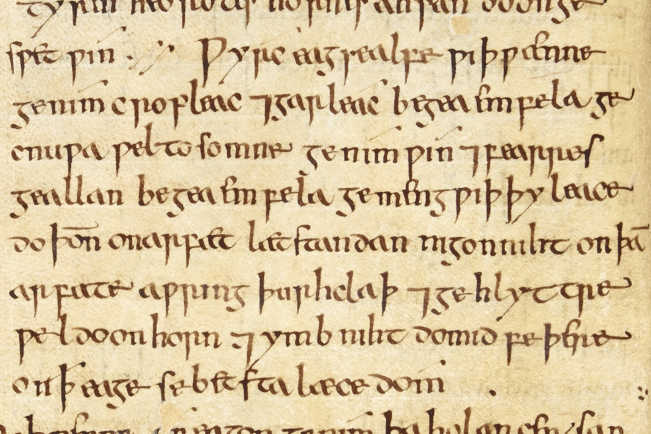 ſƿet ƿin ·,· Ƿyrc eagsealfe ƿiþ ƿænne
genim cropleac ⁊ garleac begea emfela ge
cnuƿa ƿel tosomne genim ƿin ⁊ fearres
geallan begea emfela gemeng ƿiþ þy leace
do þoñ on arfæt læt standan nigon niht on þā
arfate aƿring þurh claþ ⁊ gehlyttre
ƿel do on horn ⁊ ymb niht do mid feþre
on ꝥ eage se betsta læce dom .